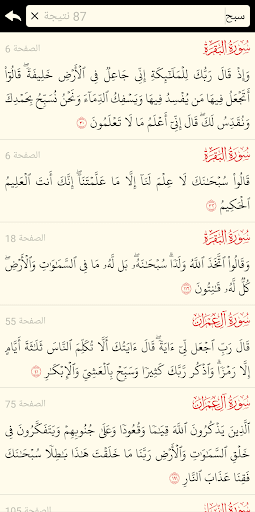 سبح
87 نتيجة ×
سُورَةُ البَقَرَةِ
الصفحة 6
وَإِذْ قَالَ رَبُّكَ لِلْمَلَٰٓئِكَةِ إِنِّى جَاعِلٌ فِى ٱلْأَرْضِ خَلِيفَةً ۖ قَالُوٓا۟
أَتَجْعَلُ فِيهَا مَن يُفْسِدُ فِيهَا وَيَسْفِكُ ٱلدِّمَآءَ وَنَحْنُ نُسَبِّحُ بِحَمْدِكَ
وَنُقَدِّسُ لَكَ ۖ قَالَ إِنِّىٓ أَعْلَمُ مَا لَا تَعْلَمُونَ ٣٠
سُورَةُ البَقَرَةِ
الصفحة 6
قَالُوا۟ سُبْحَٰنَكَ لَا عِلْمَ لَنَآ إِلَّا مَا عَلَّمْتَنَآ ۖ إِنَّكَ أَنتَ ٱلْعَلِيمُ
ٱلْحَكِيمُ ٣٢
سُورَةُ البَقَرَةِ
الصفحة 18
وَقَالُوا۟ ٱتَّخَذَ ٱللَّهُ وَلَدًا ۗ سُبْحَٰنَهُۥ ۖ بَل لَّهُۥ مَا فِى ٱلسَّمَٰوَٰتِ وَٱلْأَرْضِ ۖ
كُلٌّ لَّهُۥ قَٰنِتُونَ ١١٦
سُورَةُ آلِ عِمْرَانَ
الصفحة 55
قَالَ رَبِّ ٱجْعَل لِّىٓ ءَايَةً ۖ قَالَ ءَايَتُكَ أَلَّا تُكَلِّمَ ٱلنَّاسَ ثَلَٰثَةَ أَيَّامٍ
إِلَّا رَمْزًا ۗ وَٱذْكُر رَّبَّكَ كَثِيرًا وَسَبِّحْ بِٱلْعَشِىِّ وَٱلْإِبْكَٰرِ ٤١
سُورَةُ آلِ عِمْرَانَ
الصفحة 75
ٱلَّذِينَ يَذْكُرُونَ ٱللَّهَ قِيَٰمًا وَقُعُودًا وَعَلَىٰ جُنُوبِهِمْ وَيَتَفَكَّرُونَ فِى
خَلْقِ ٱلسَّمَٰوَٰتِ وَٱلْأَرْضِ رَبَّنَا مَا خَلَقْتَ هَٰذَا بَٰطِلًا سُبْحَٰنَكَ
فَقِنَا عَذَابَ ٱلنَّارِ ١٩١
الصفحة 105